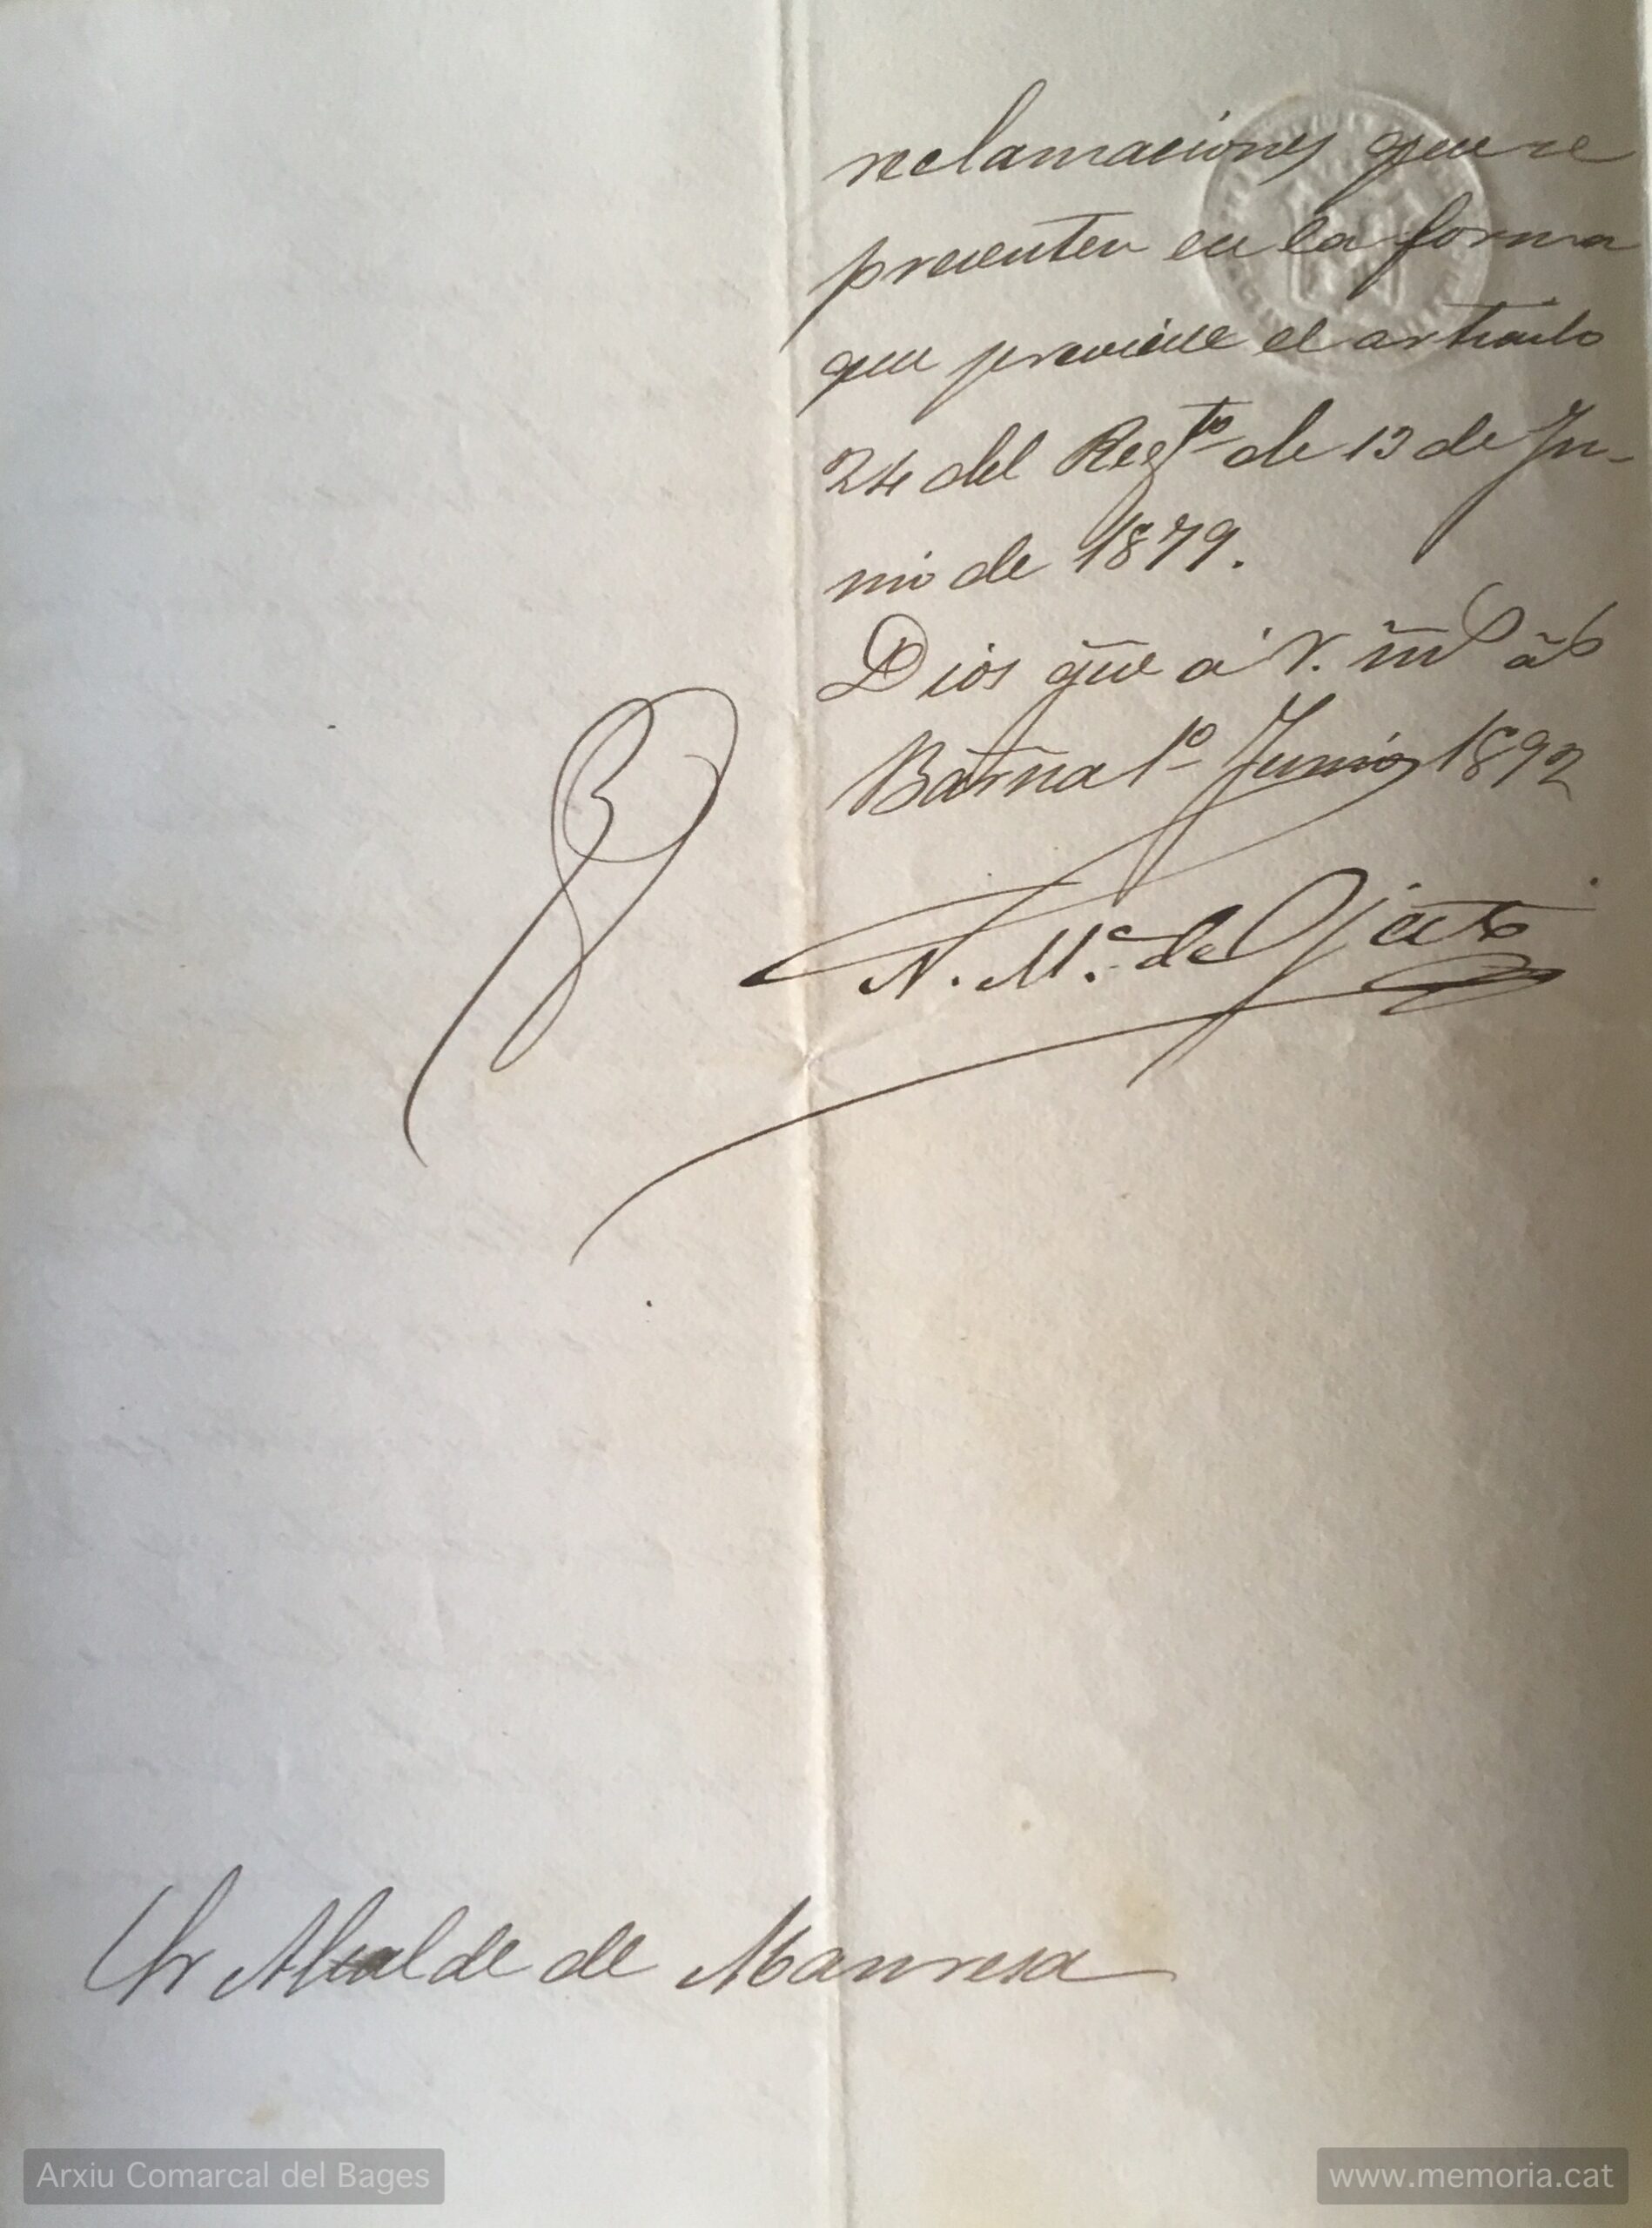 reclamaciones que se
presenten en la forma
que previene el articulo
24 del Regto de 13 de Ju-
nio de 1879.
Dios gūe á V. m̄s ās
Barna 1º Junio 1892
N. Mª de Ojesto
Sr Alcalde de Manresa
Arxiu Comarcal del Bages
www.memoria.cat